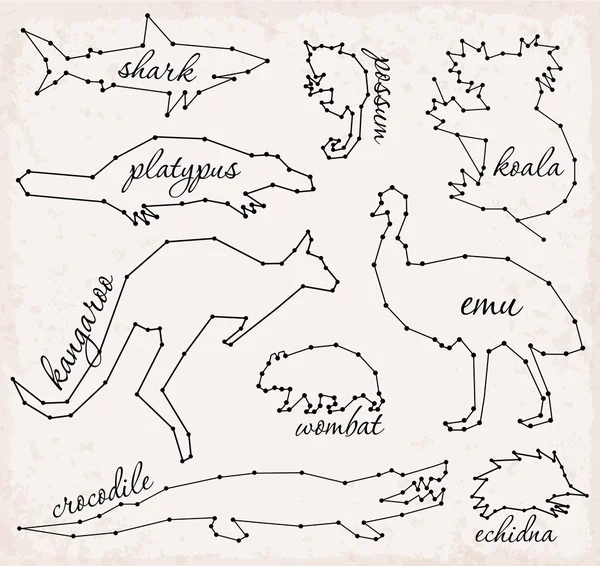 shark
possum
koala
platypus
kangaroo
emu
wombat
crocodile
echidna